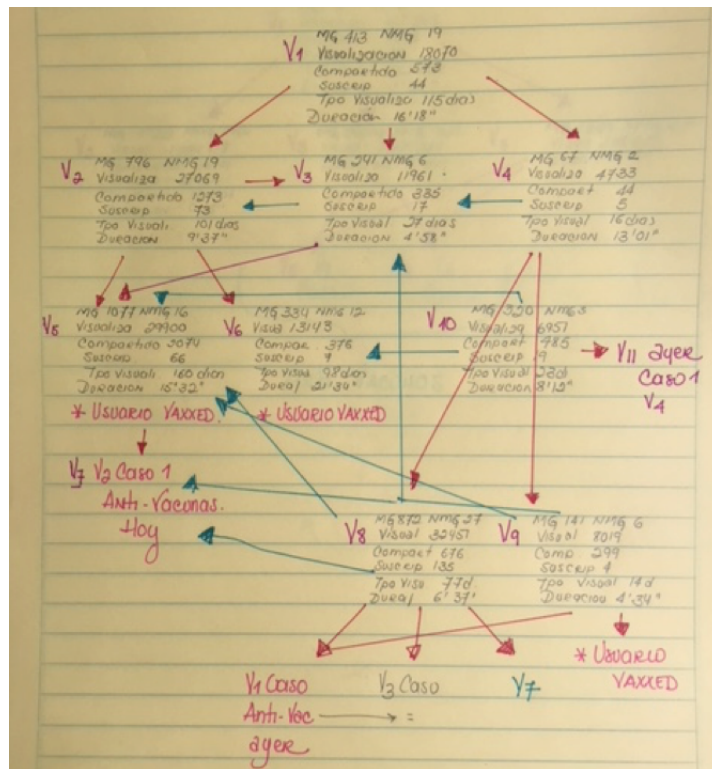 V1
MG 413 NMG 19
Visualizacion 18070
Compartido 573
Suscrip 44
Tpo Visualizo 115 dias
Duración 16'18"
V2
MG 796 NMG 19
Visualiza 27069
Compartido 1273
Suscrip 73
Tpo Visuali. 101 dias
Duracion 9'37"
V3
MG 241 NMG 6
Visualizo 11961
Compartido 335
Suscrip 17
Tpo Visual 27 dias
Duración 4'58"
V4
MG 67 NMG 2
Visualizo 4733
Compart 44
Suscrip 5
Tpo Visual 16 dias
Duración 13'01"
V5
MG 1077 NMG 16
Visualiza 29900
Compartido 2074
Suscrip 66
Tpo Visuali. 160 dias
Duración 15'32"
* USUARIO VAXXED.
V6
MG 334 NMG 12
Visua 13143
Compar. 376
Suscrip 9
Tpo Visua 98 dias
Durac 21'34"
* USUARIO VAXXED
V10
MG 320 NMG 3
Visualiza 6957
Compart 485
Suscrip 9
Tpo Visual 23d
Duración 8'12"
V11 ayer
Caso 1
V4
V7 V2 Caso 1
Anti-Vacunas.
Hoy
V8
MG 872 NMG 27
Visual 32957
Compart 676
Suscrip 135
Tpo Visu. 77d
Durac 6'37"
V9
MG 141 NMG 6
Visual 8019
Comp. 299
Suscrip 4
Tpo Visual 14d
Duracion 4'34"
* USUARIO
VAXXED
V1 Caso
Anti-Vac
ayer
V3 Caso
=
V7